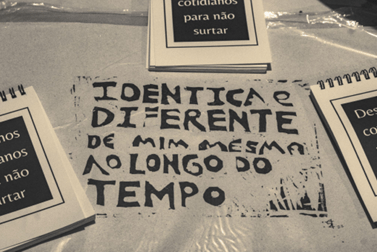 cotidianos
para não
surtar
IDENTICA e
DIFERENTE
DE MIM MESMA
AO LONGO DO
TEMPO
não
surtar
Des